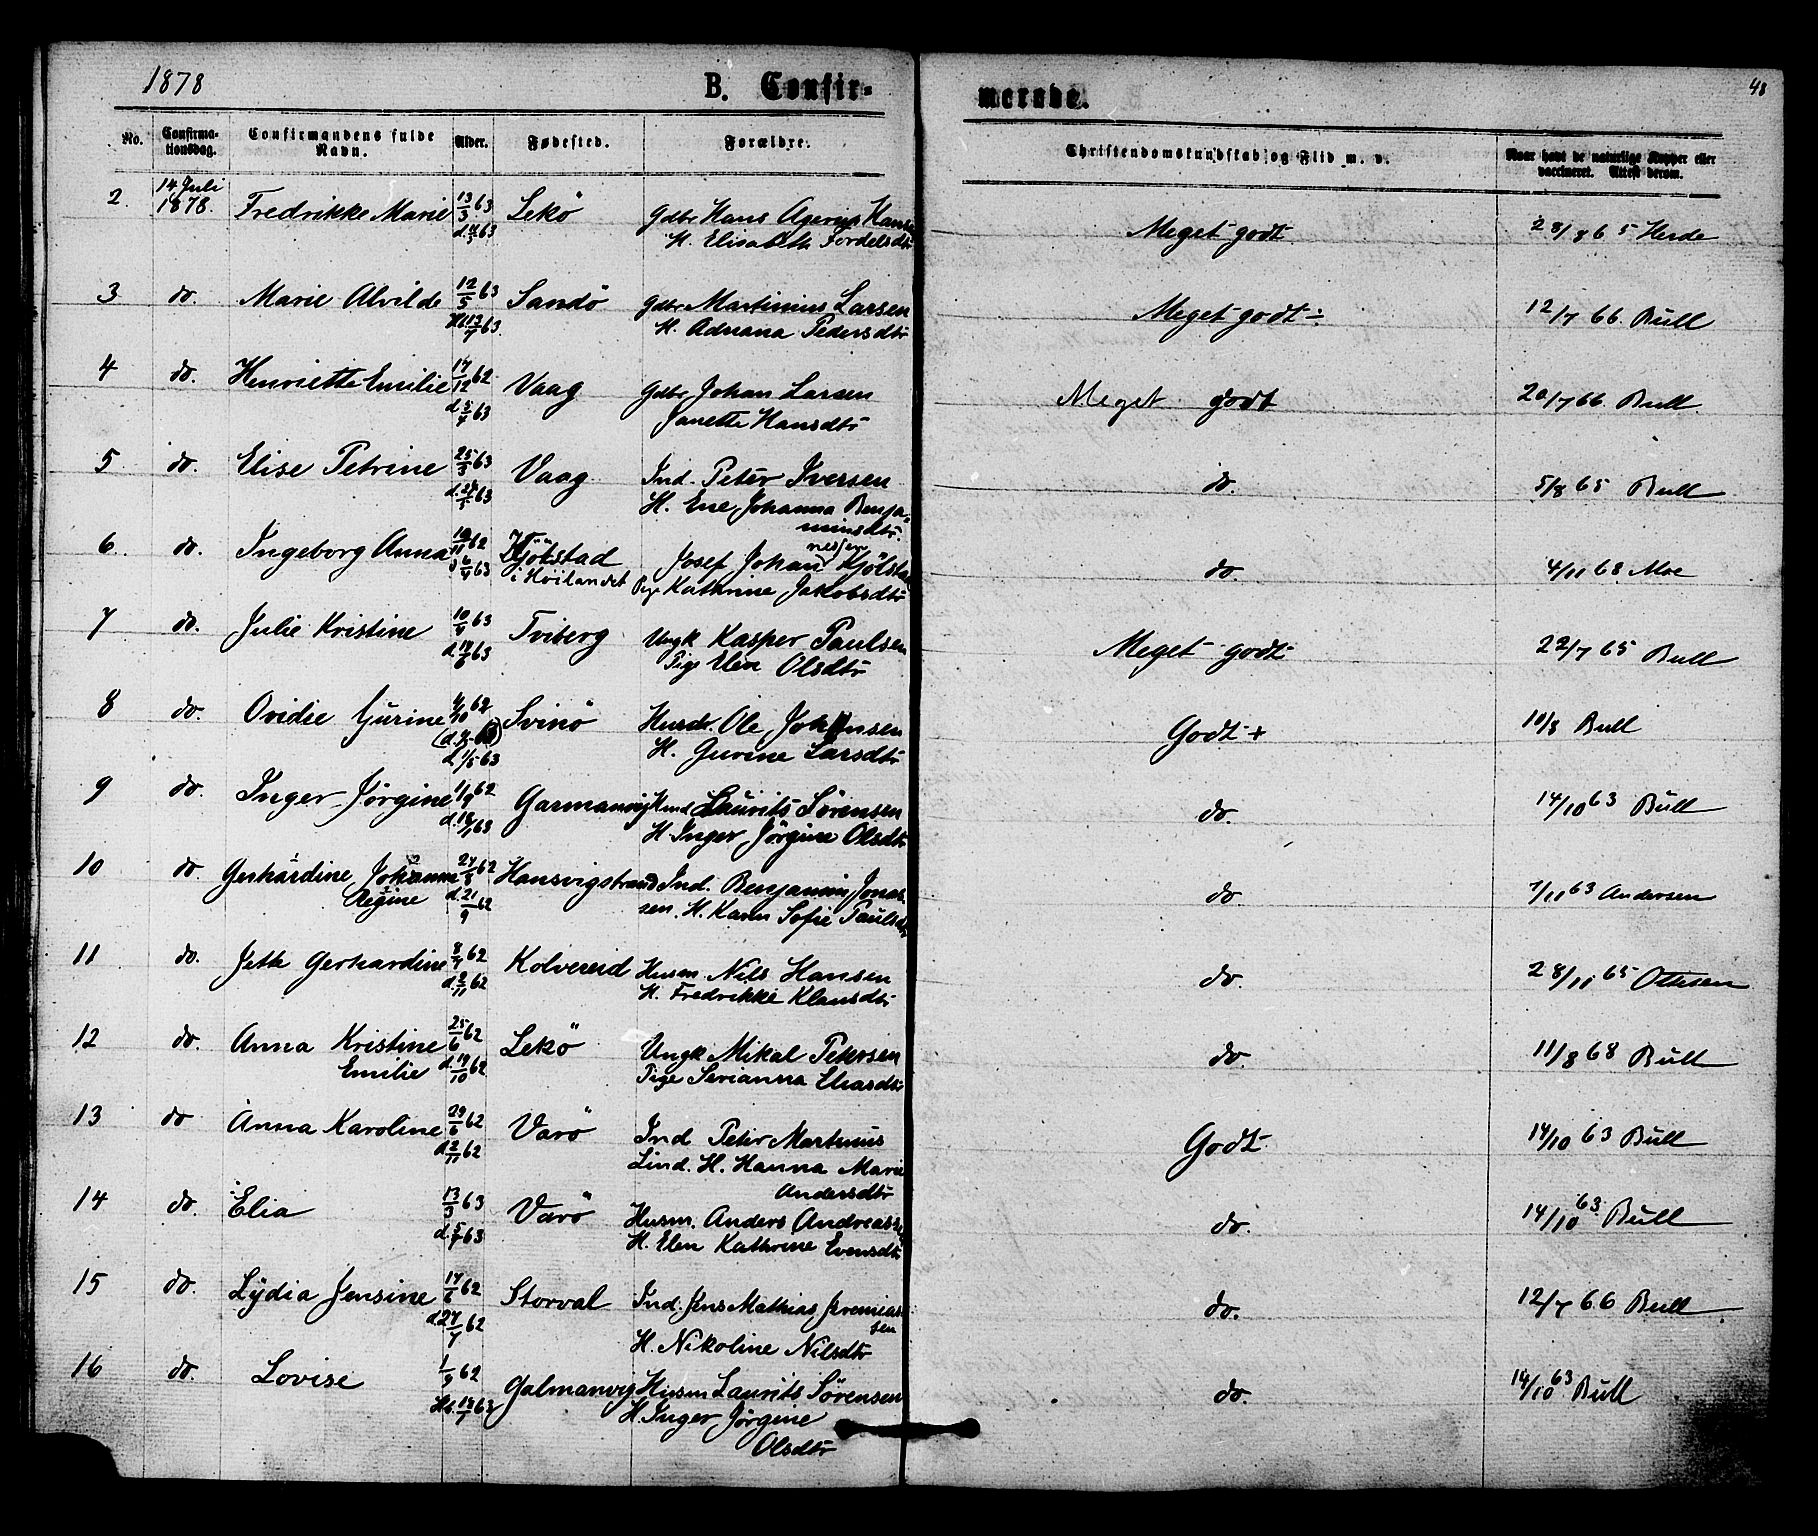 1878
B. Confir-
merede.
48
No.
Confirma-
tionsdag.
Confirmandens fulde
Navn.
Alder.
Fødested.
Forældre.
Christendomskundskab og Flid m. v.
Naar havt de naturlige Kopper eller
vaccineret. Attest derom.
2 14 Juli 1878. Fredrikke Marie 13/3 63 Lekö Gdbr Hans Agerup Hansen
H. Elisabeth Fordelsdtr
Meget godt 28/8 65 Herde
3 do. Marie Alvilde 12/5 63 Sandö Gdbr Martinius Larsen
H. Adriana Pedersdtr
Meget godt ÷ 12/7 66. Bull
4 do. Henriette Emilie 17/12 62 Vaag Gdbr Johan Larsen
Janette Hansdtr
Meget godt 20/7 66. Bull.
5 do. Elise Petrine 25/3 63 Vaag Ind. Peter Iversen
H. Ene Johanna Benja-
minsdtr.
do. 5/8 65 Bull
6 do. Ingeborg Anna 62 Kjölstad
i Höilandet
Josef Johannessen Kjölstad
Pige Kathrine Jakobsdtr
do. 4/11 68 Moe
7 do. Julie Kristine 63 Tviberg Ungk Kasper Paulsen
Pige Elen Olsdtr
Meget godt 22/7 65 Bull
8 do. Ovidie Gurine 4/10 62 Svinö Ole Johansen
d 1/5 63 H. Gurine Larsdtr
Godt + 10/8 Bull
9 do. Inger Jørgine 11/9 62 Garmanvig Husm Laurits Sörensen
H. Inger Jörgine Olsdtr
do. 14/10 63 Bull
10 do. Gerhardine Johanna 24/8 62 Hansvigstrand Ind. Benjamin Jonas-
Regine d. 21/9 62 sen. H. Karen Sofie Paulsdtr
do. 7/11 63 Andersen
11 do. Jette Gerhardine 8/7 62 Kolvereid Husm. Nils Hansen
d. 2/11 62 H. Fredrikke Klausdtr
do. 28/11 65 Ottesen
12 do. Anna Kristine 25/6 62 Lekö Ungk Mikal Petersen
Emilie d. 19/10 62 Pige Serianna Eliasdtr
do. 11/8 68 Bull
13 do Anna Karoline 29/6 62 Varö Ind Peter Martinus
d 2/11 62 Lind. H. Hanna Marie
Andersdtr
Godt 14/10 63 Bull
14 do. Elia 13/3 63 Varö Husm. Anders Andreassen
d. 5/7 63 H. Elen Kathrine Evensdtr
do. 14/10 63 Bull
15 do. Lydia Jensine 17/6 62 Storval Ind. Jens Mathias Jeremias-
sen
d 27/7 62 H. Nikoline Nilsdtr
do. 12/7 66 Bull
16 do. Lovise 1/9 62 Galmanvig Husm Laurits Sörensen
H. Inger Jörgine
Olsdtr
do. 14/10 63 Bull